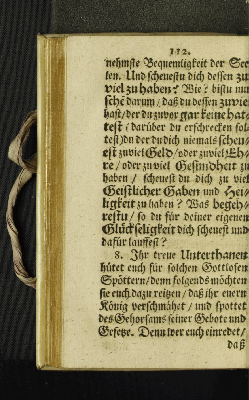 112.
nehmste Bequemligkeit der See
len. Und scheuestu dich dessen zu
viel zu haben? Wie? bistu nur
schē darum/ daß du dessen zuwie
hast/ der du zuvor gar keine hat=
test/ darüber du erschrecken sol=
test) du der du dich niemals scheu=
est zuviel Geld/ oder zuviel Eh=
re/ oder zu viel Gesundheit zu
haben/ scheuest du dich zu viel
Geistlicher Gaben und Hei=
ligkeit zu haben? Was begeh=
restu/ so du für deiner eigenen
Glückseligkeit dich scheuest und
dafür lauffest?
8. Ihr treue Unterthanen
hütet euch für solchen Gottlosen
Spöttern/ denn folgends möchten
sie euch dazu reitzen/ daß ihr euern
König verschmähet/ und spottet
des Gehorsams seiner Gebote und
Gesetze. Denn wer euch einredet/
daß